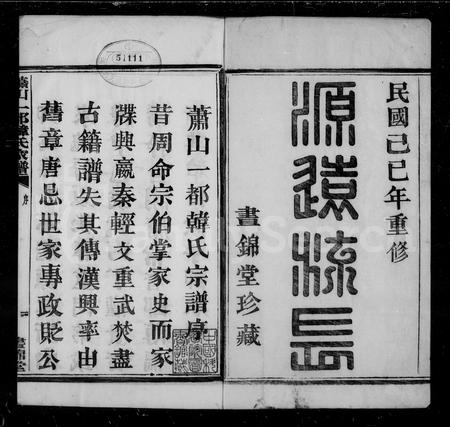 民國己巳年重修
源遠流長
晝錦堂珍藏
蕭山一都韓氏宗譜序
昔周命宗伯掌家史而家
牒興嬴秦輕文重武焚盡
古籍譜失其傳漢興率由
舊章唐忌世家專政貶公
蕭山一都韓氏家譜
序
一
晝錦堂
51111